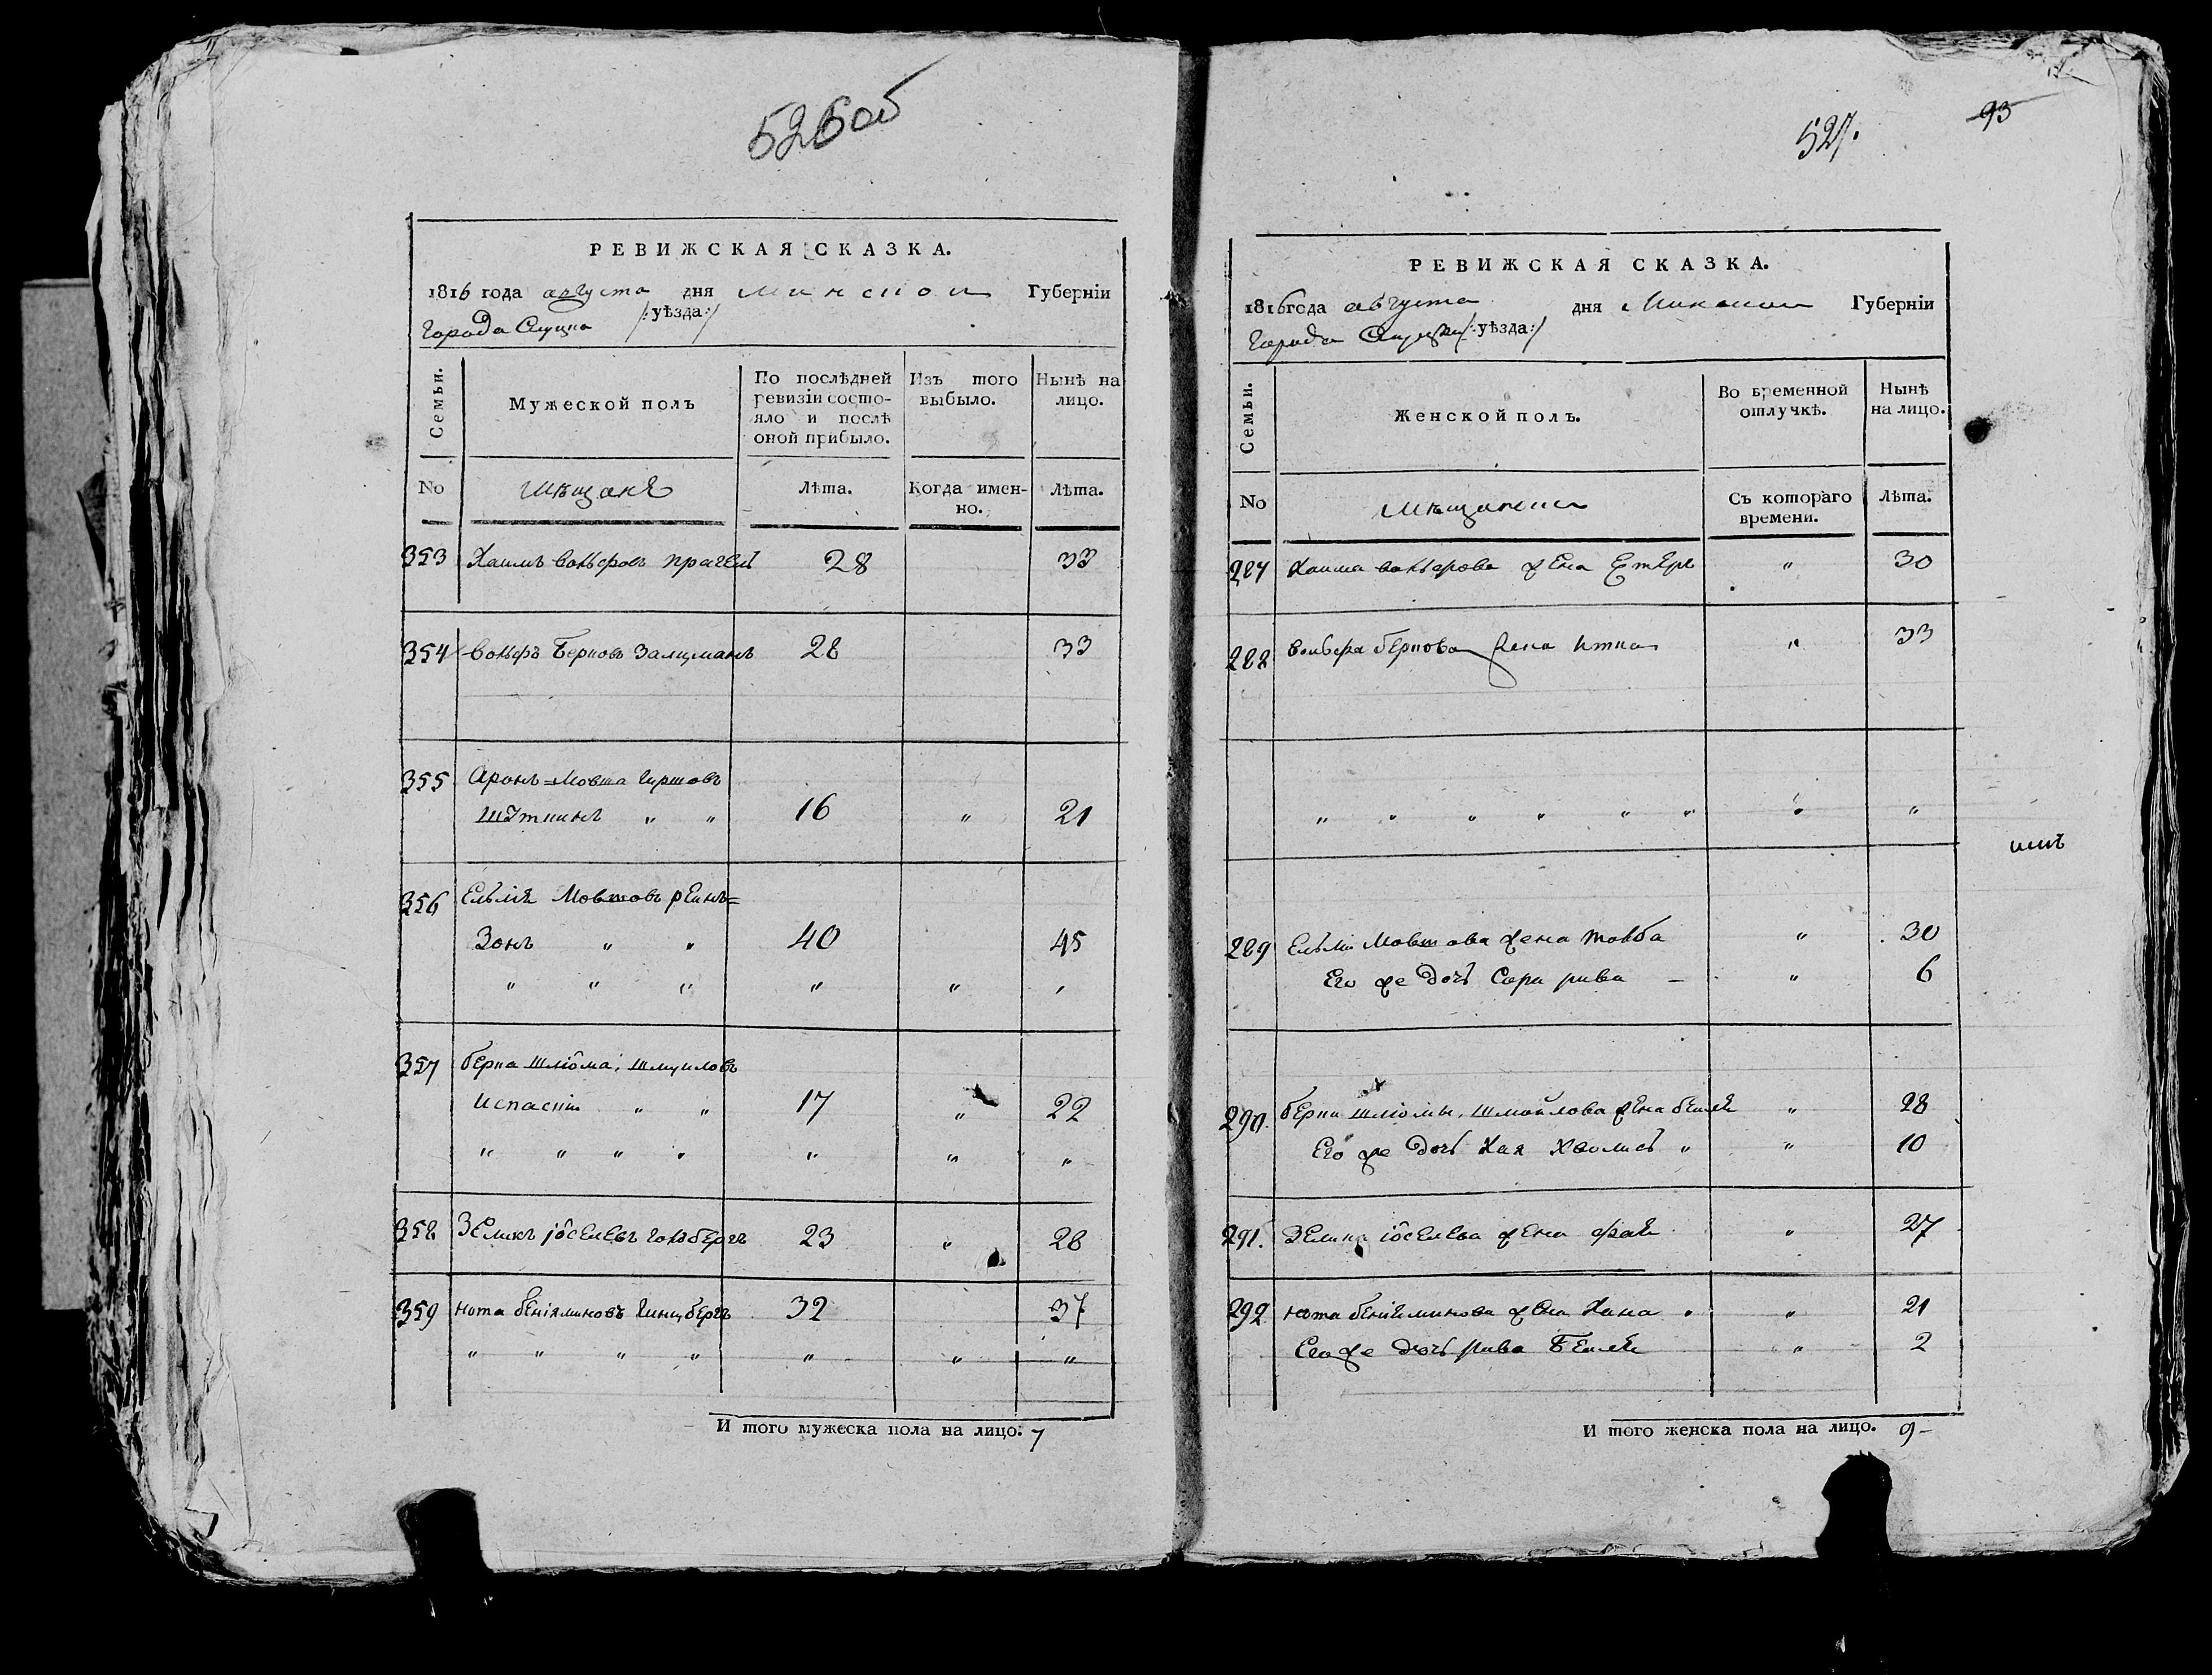 526об
РЕВИЖСКАЯ СКАЗКА.
1816 года августа дня Минской Губерніи
Города Слуцка /:уѣзда:/
Семьи.
Мужеской полъ
По послѣдней ревизіи состояло и послѣ оной прибыло.
Изъ того выбыло.
Нынѣ на лицо.
No Мѣщане Лѣта. Когда именно. Лѣта.
353 Хаимъ Вольфовъ 28 33
354 Вольфъ Берковъ Залцманъ 28 33
355 Аронъ=Мовша Гиршовъ
" " 16 " 21
356 Мовшовъ Реинъ=
Зонъ " " 40 45
" " " " " "
357 Берка Шліома Шмуиловъ
" " 17 " 22
" " " " " " "
358 Зеликъ Іоселевъ Гольбергъ 23 " 28
359 Нота Беніяминовъ Гинцбергъ 32 37
" " " " " " "
И того мужеска пола на лицо: 7
527.
93
РЕВИЖСКАЯ СКАЗКА.
1816 года августа дня Минской Губерніи
Города Слуцка /:уѣзда:/
Семьи.
Женской полъ.
Во временной отлучкѣ.
Нынѣ на лицо.
No Мѣщанки Съ котораго времени. Лѣта.
287 Хаима Вольфова жена Естерь " 30
288 Вольфа Беркова жена Итка " 33
" " " " " " " "
289 Мовшова жена Товба " 30
Его же дочь Сора Рива — " 6
290. Берки Шліомы Шмойлова жена Беиле " 28
Его же дочь Хая " " 10
291. Зелика Іоселева жена " 27
292 Нота Беніяминова жена Хана " " 21
Его же дочь Рива Беиле " 2
И того женска пола на лицо. 9-